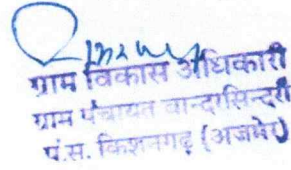 ग्राम विकास अधिकारी
ग्राम पंचायत बान्दरसिन्दरी
पं.स. किशनगढ़ (अजमेर)